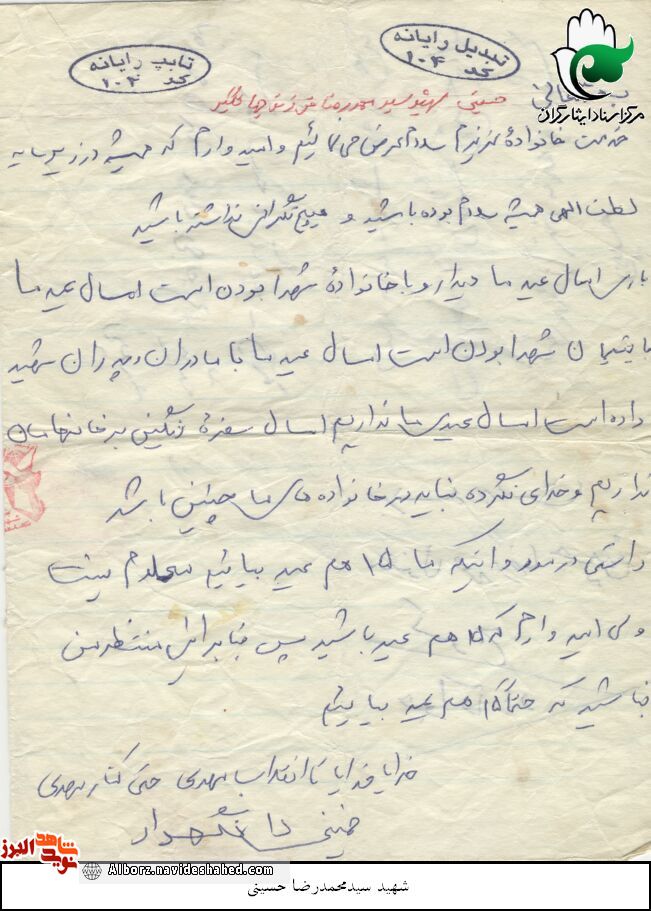 مرکز اسناد ایثارگران
تبدیل رایانه
کد ۱۰۴
تایپ رایانه
کد ۱۰۴
بسمه تعالی
حسینی شهید سید محمدرضا
خدمت خانوادهٔ عزیزم سلام عرض می نمائیم و امید وارم که همیشه در زیر سایه
لطف الهی همیشه سلام بوده باشید و هیچ نگرانی نداشته باشید
باری امسال عید ما دیدار و با خانوادهٔ شهدا بودن است امسال عید ما
با یتیمان شهدا بودن است امسال عید ما با مادران و پدران شهید
داده است امسال عیدی ما نداریم امسال سفرهٔ رنگینی در خانهامان
نداریم و خدای نکرده نباید در خانواده های ما چنین باشد
راستی در مورد اینکه ما ۱۵ هم عید بیائیم معلوم نیست
ولی امید وارم که ۱۵ هم عید باشید پس بنابراین منتظر من
نباشید که حتماً ۱۵ هم عید بیائیم
خدایا خدایا تا انقلاب مهدی حتی کنار مهدی
خمینی را نگهدار
شاهد نوید البرز
Alborz.navideshahed.com
شهید سیدمحمدرضا حسینی